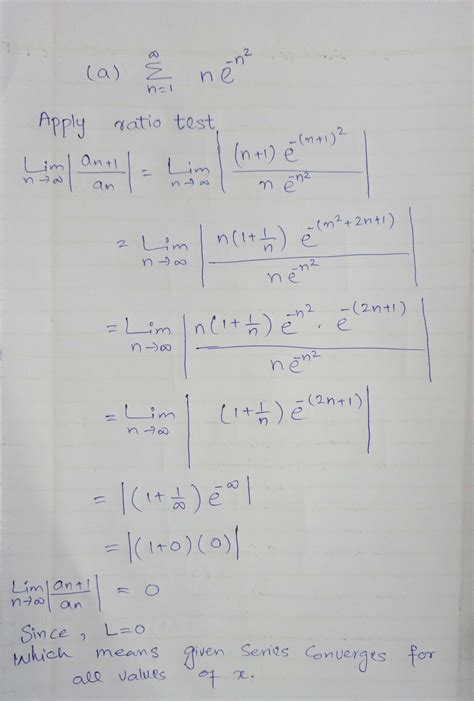 (a) ∞ Σ n=1 n e^-n^2
Apply ratio test,
Lim n→∞ |an+1 / an| = Lim n→∞ |(n+1) e^-(n+1)^2 / n e^-n^2|
= Lim n→∞ |n(1+1/n) e^-(n^2+2n+1) / n e^-n^2|
= Lim n→∞ |n(1+1/n) e^-n^2 . e^-(2n+1) / n e^-n^2|
= Lim n→∞ |(1+1/n) e^-(2n+1)|
= |(1+1/∞) e^-∞|
= |(1+0)(0)|
Lim n→∞ |an+1 / an| = 0
Since, L=0
which means given series converges for
all values of x.